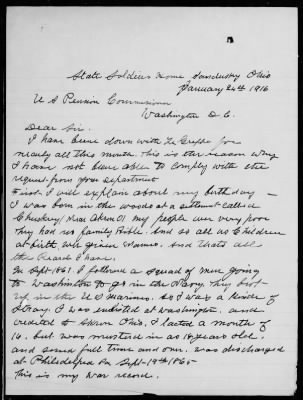 State Soldiers Home Sandusky Ohio
January 24th 1916
U S Pension Commissioner
Washington D C.
Dear Sir.
I have been down with La Grippe for
nearly all this month. This is the reason why
I have not been able to comply with the
request from your department
First. I will explain about my birthday —
I was born in the woods at a settlement called
near Akron O) my people were very poor
They had no family Bible. And so all us Children
at birth were given names. And thats all
the Record I have.
In Sept 1861 I followed a squad of men going
to Washington to go in the Navy. They
up in the U S Marines. so I was a kinder of
Stray. I was enlisted at washington. and
credited to Akron Ohio. I lacted a month of
16. but was mustered in as 18 years old.
and served full time and over. was discharged
at Philadelphia Pa Sept-19th 1865
This is my war record.